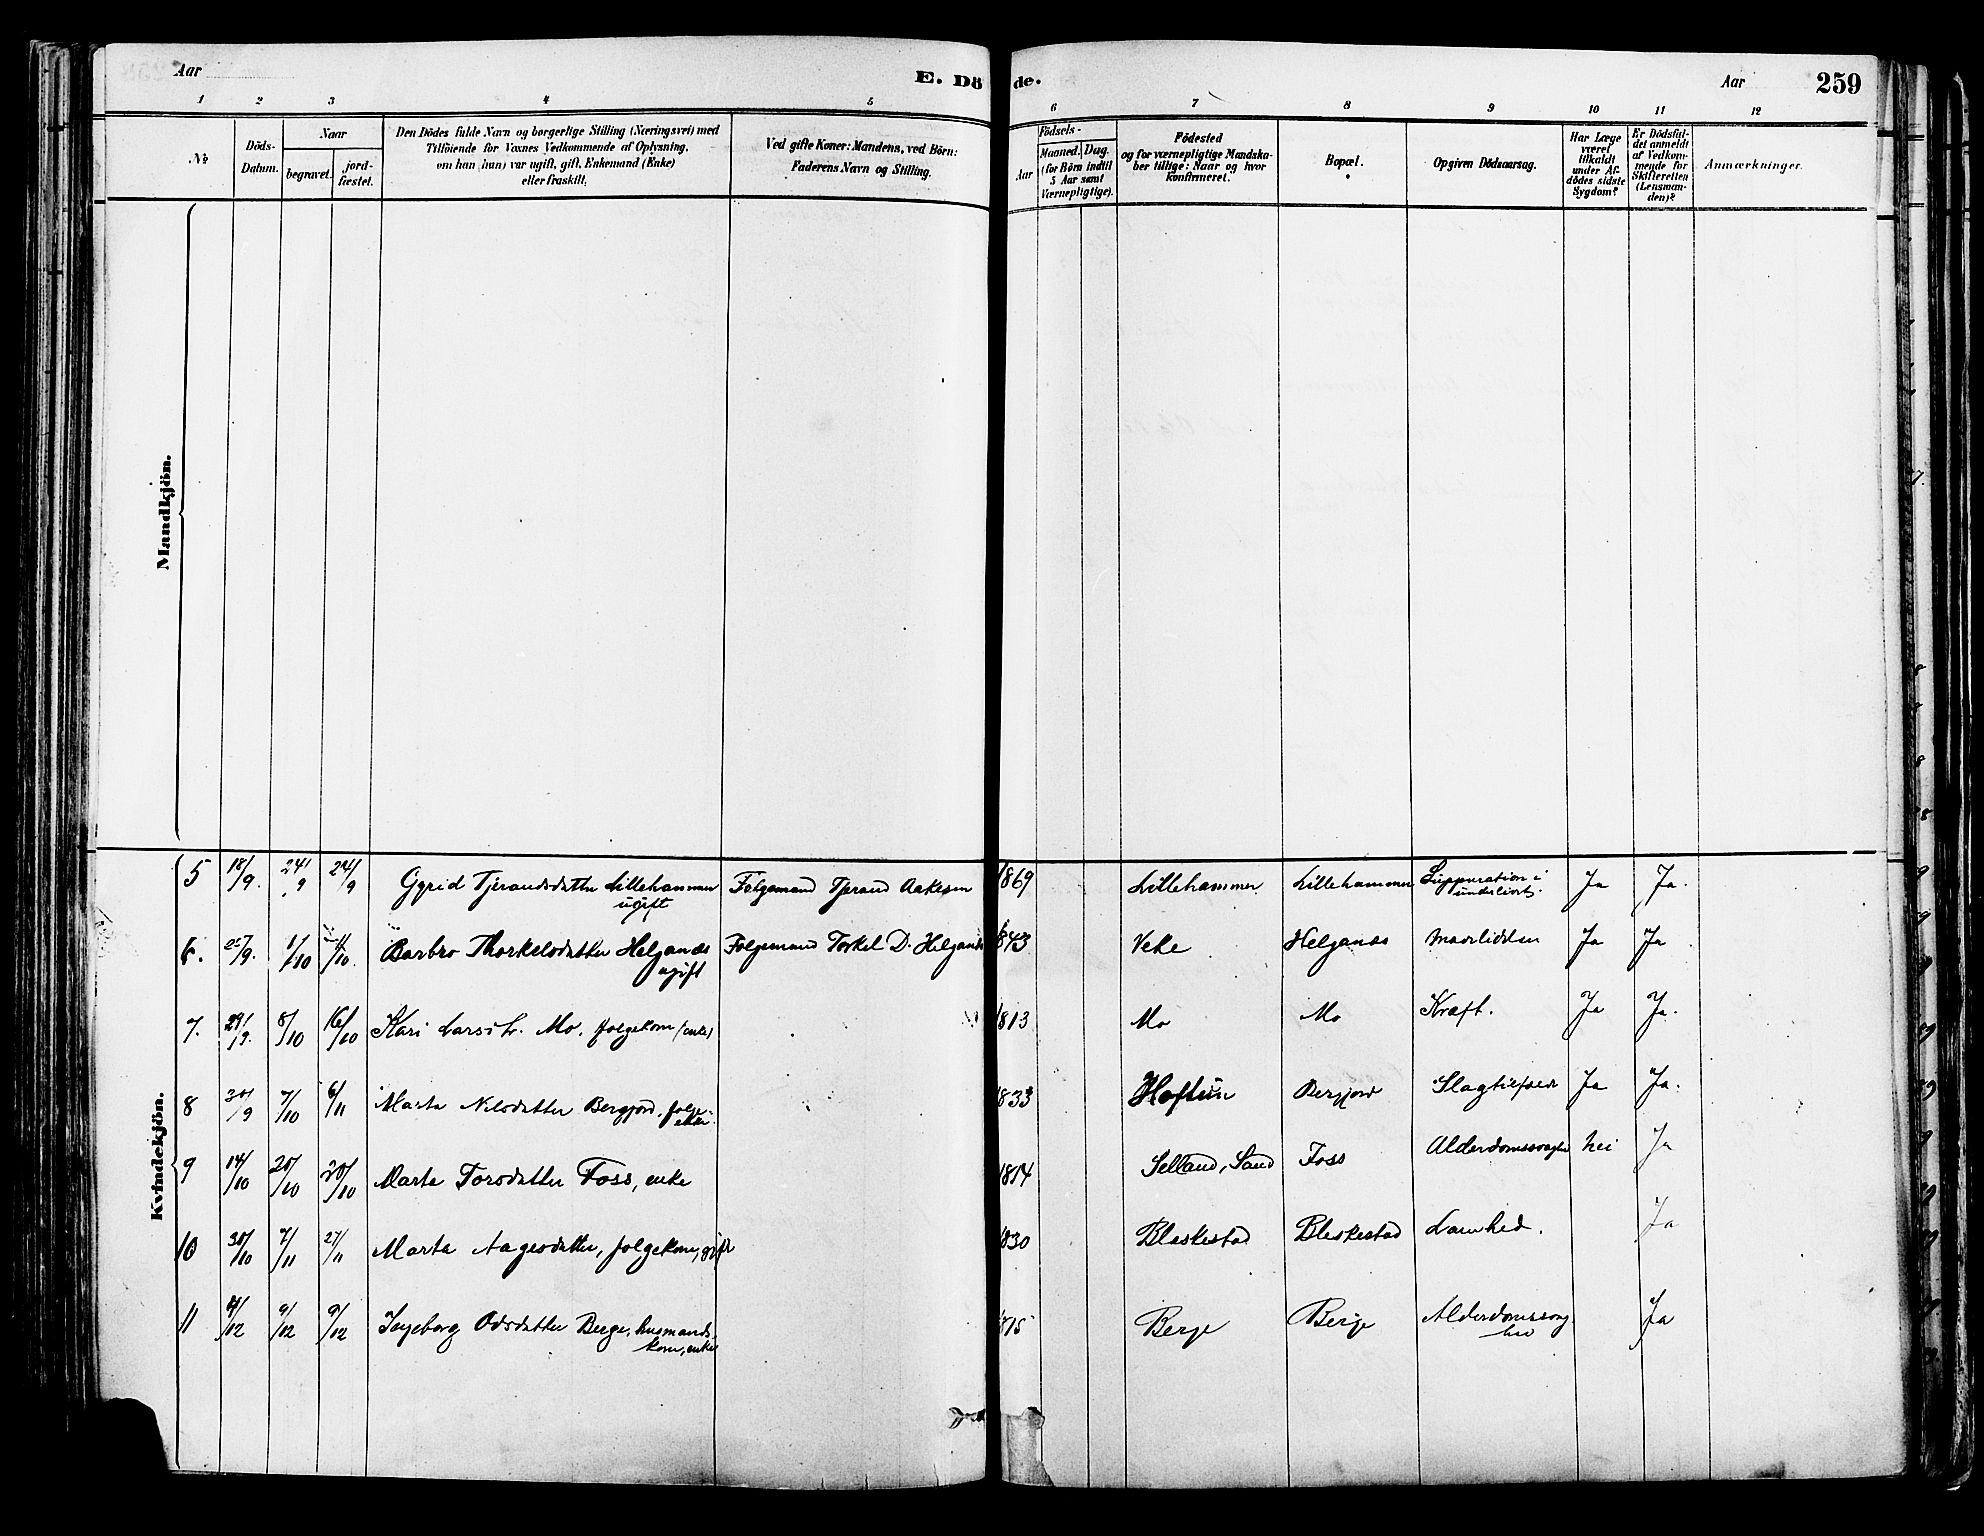 Aar
E. Dö
de.
Aar
259
1 2 3 4 5 6 7 8 9 10 11 12
No
Döds-
Datum.
Naar
begravet.
jord-
fæstet.
Den Dödes fulde Navn og borgerlige Stilling (Næringsvei) med
Tilföiende for Voxnes Vedkommende af Oplysning,
om han (hun) var ugift, gift, Enkemand (Enke)
eller fraskilt.
Ved gifte Koner: Mandens, ved Börn:
Faderens Navn og Stilling.
Födsels-
Aar
Maaned. Dag.
(for Börn indtil
5 Aar samt
Værnepligtige).
Födested
og for værnepligtige Mandska-
ber tillige: Naar og hvor
konfirmeret.
Bopæl.
Opgiven Dödsaarsag.
Har Læge
været
tilkaldt
under Af-
dödes sidste
Sygdom?
Er Dödsfal-
det anmeldt
af Vedkom-
mende for
Skifteretten
(Lensman-
den)?
Anmærkninger.
Mandkjön.
Kvindekjön.
5 18/9. 24/9 24/9 Gyrid Tjerandsdatter Lillehammer Folgemand Tjerand Aakesen 1869 Lillehammer Lillehammer Suppuration i Ja Ja.
ugift
underlivet.
6. 27/9. 1/10 11/10. Barbro Thorkelsdatter Helganæs Folgemand Torkel D. Helganæs 1843 Veke Helganæs Ja Ja
ugift
7. 29/9. 8/10 16/10 Kari Larsdtr. Mo, folgekone (enke) 1813 Mo Mo Kræft. Ja Ja.
8 30/9 7/10 6/11 Marta Nilsdatter Bergjord, folge- 1833 Haftün Bergjord Slagtilfælde Ja Ja.
enke.
9 14/10 20/10 20/10 Marta Torsdatter Foss, enke 1814 Selland, Sand Foss Alderdomssvaghed Nei Ja
10 30/10 7/11 27/11 Marta Aagesdatter, folgekone, gift 1830 Bleskestad Bleskestad Lamhed. Ja
11 4/12 9/12 9/12 Ingeborg Odsdatter Berge, husmands- Berge Berge Alderdomssvag- Ja
kone, enke
hed